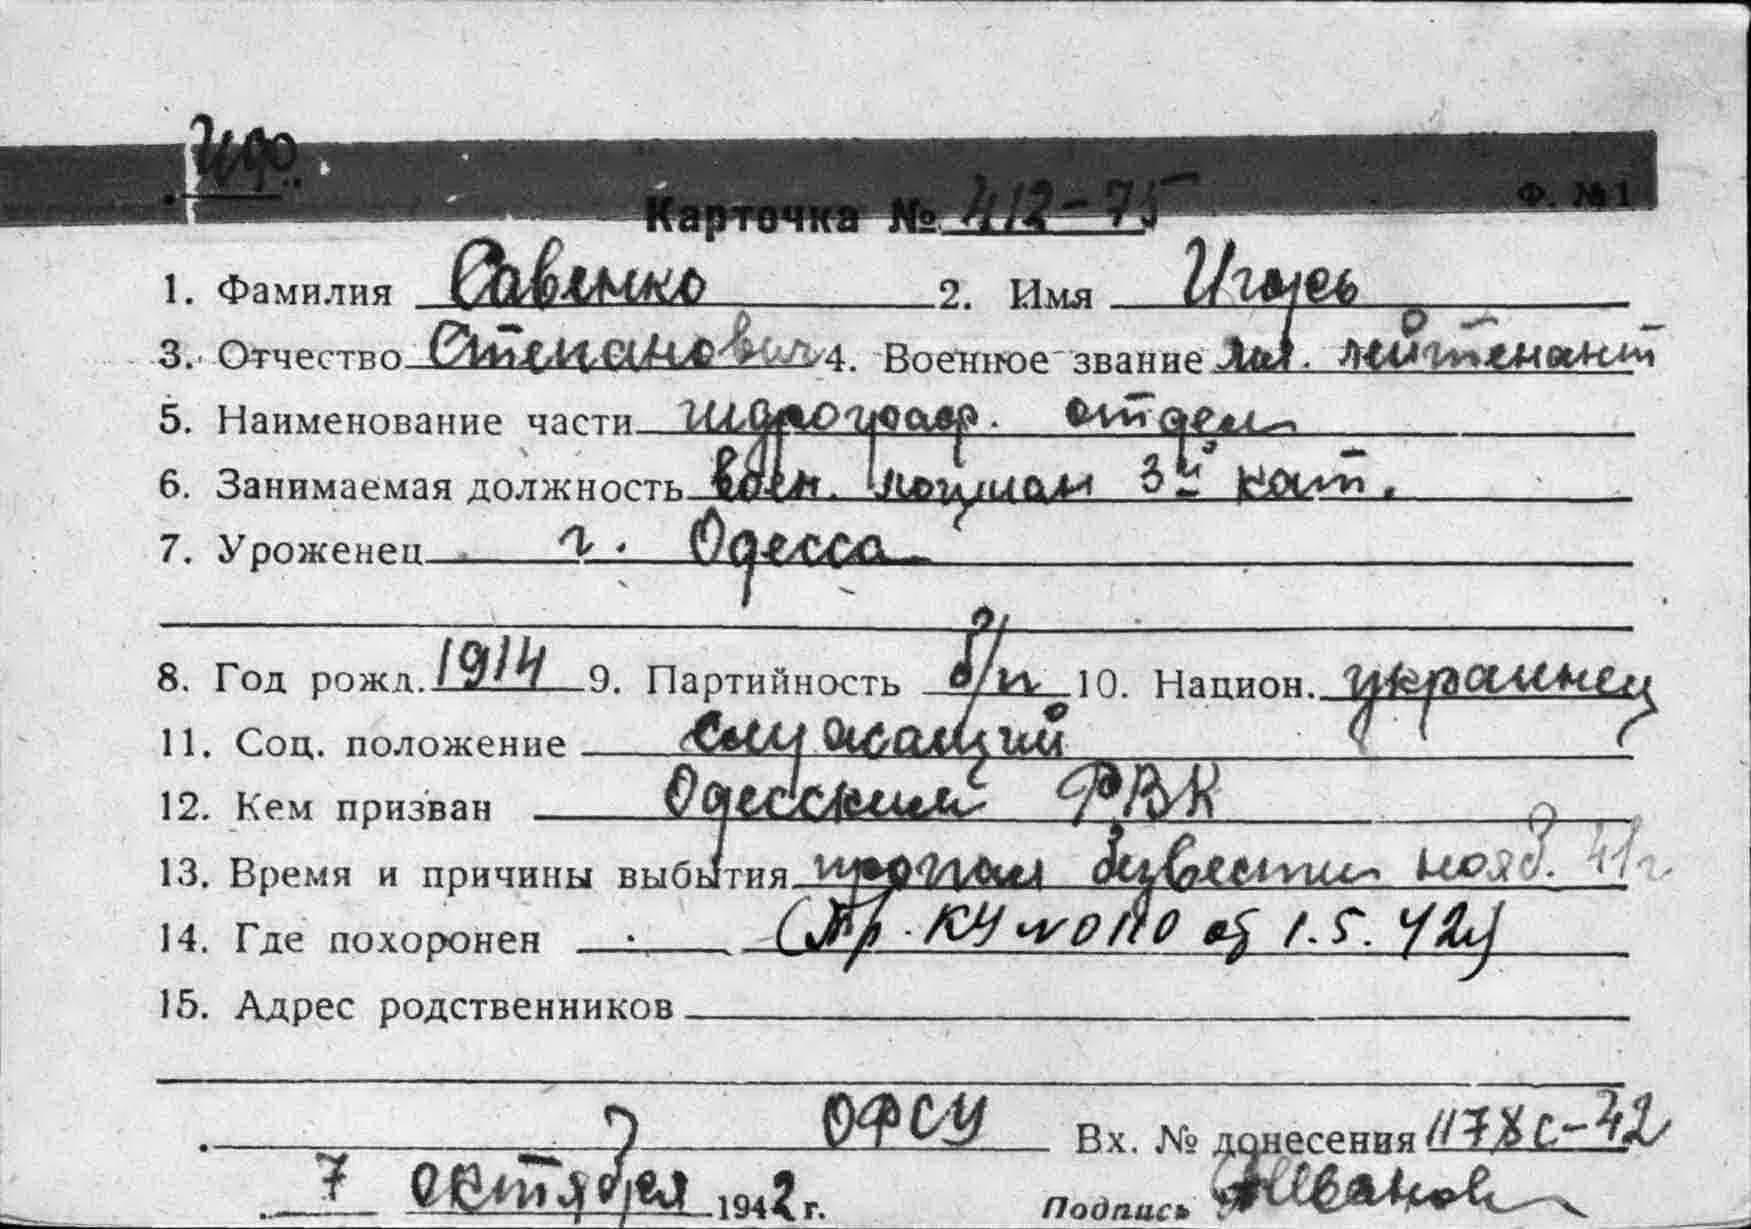 Карточка № 412-75 Ф. №1
1. Фамилия Савенко 2. Имя Игорь
3. Отчество Степанович 4. Военное звание мл. лейтенант
5. Наименование части гидрограф. отдел
6. Занимаемая должность воен. лоцман 3й кат.
7. Уроженец г. Одесса
8. Год рожд. 1914 9. Партийность б/п 10. Национ. украинец
11. Соц. положение служащий
12. Кем призван Одесским РВК
13. Время и причины выбытия пропал безвести нояб. 41 г.
14. Где похоронен (Пр. КЧ № 0110 от 1.5.42г)
15. Адрес родственников
ОФСУ Вх. № донесения 1178с-42
7 октября 1942 г. Подпись Иванов